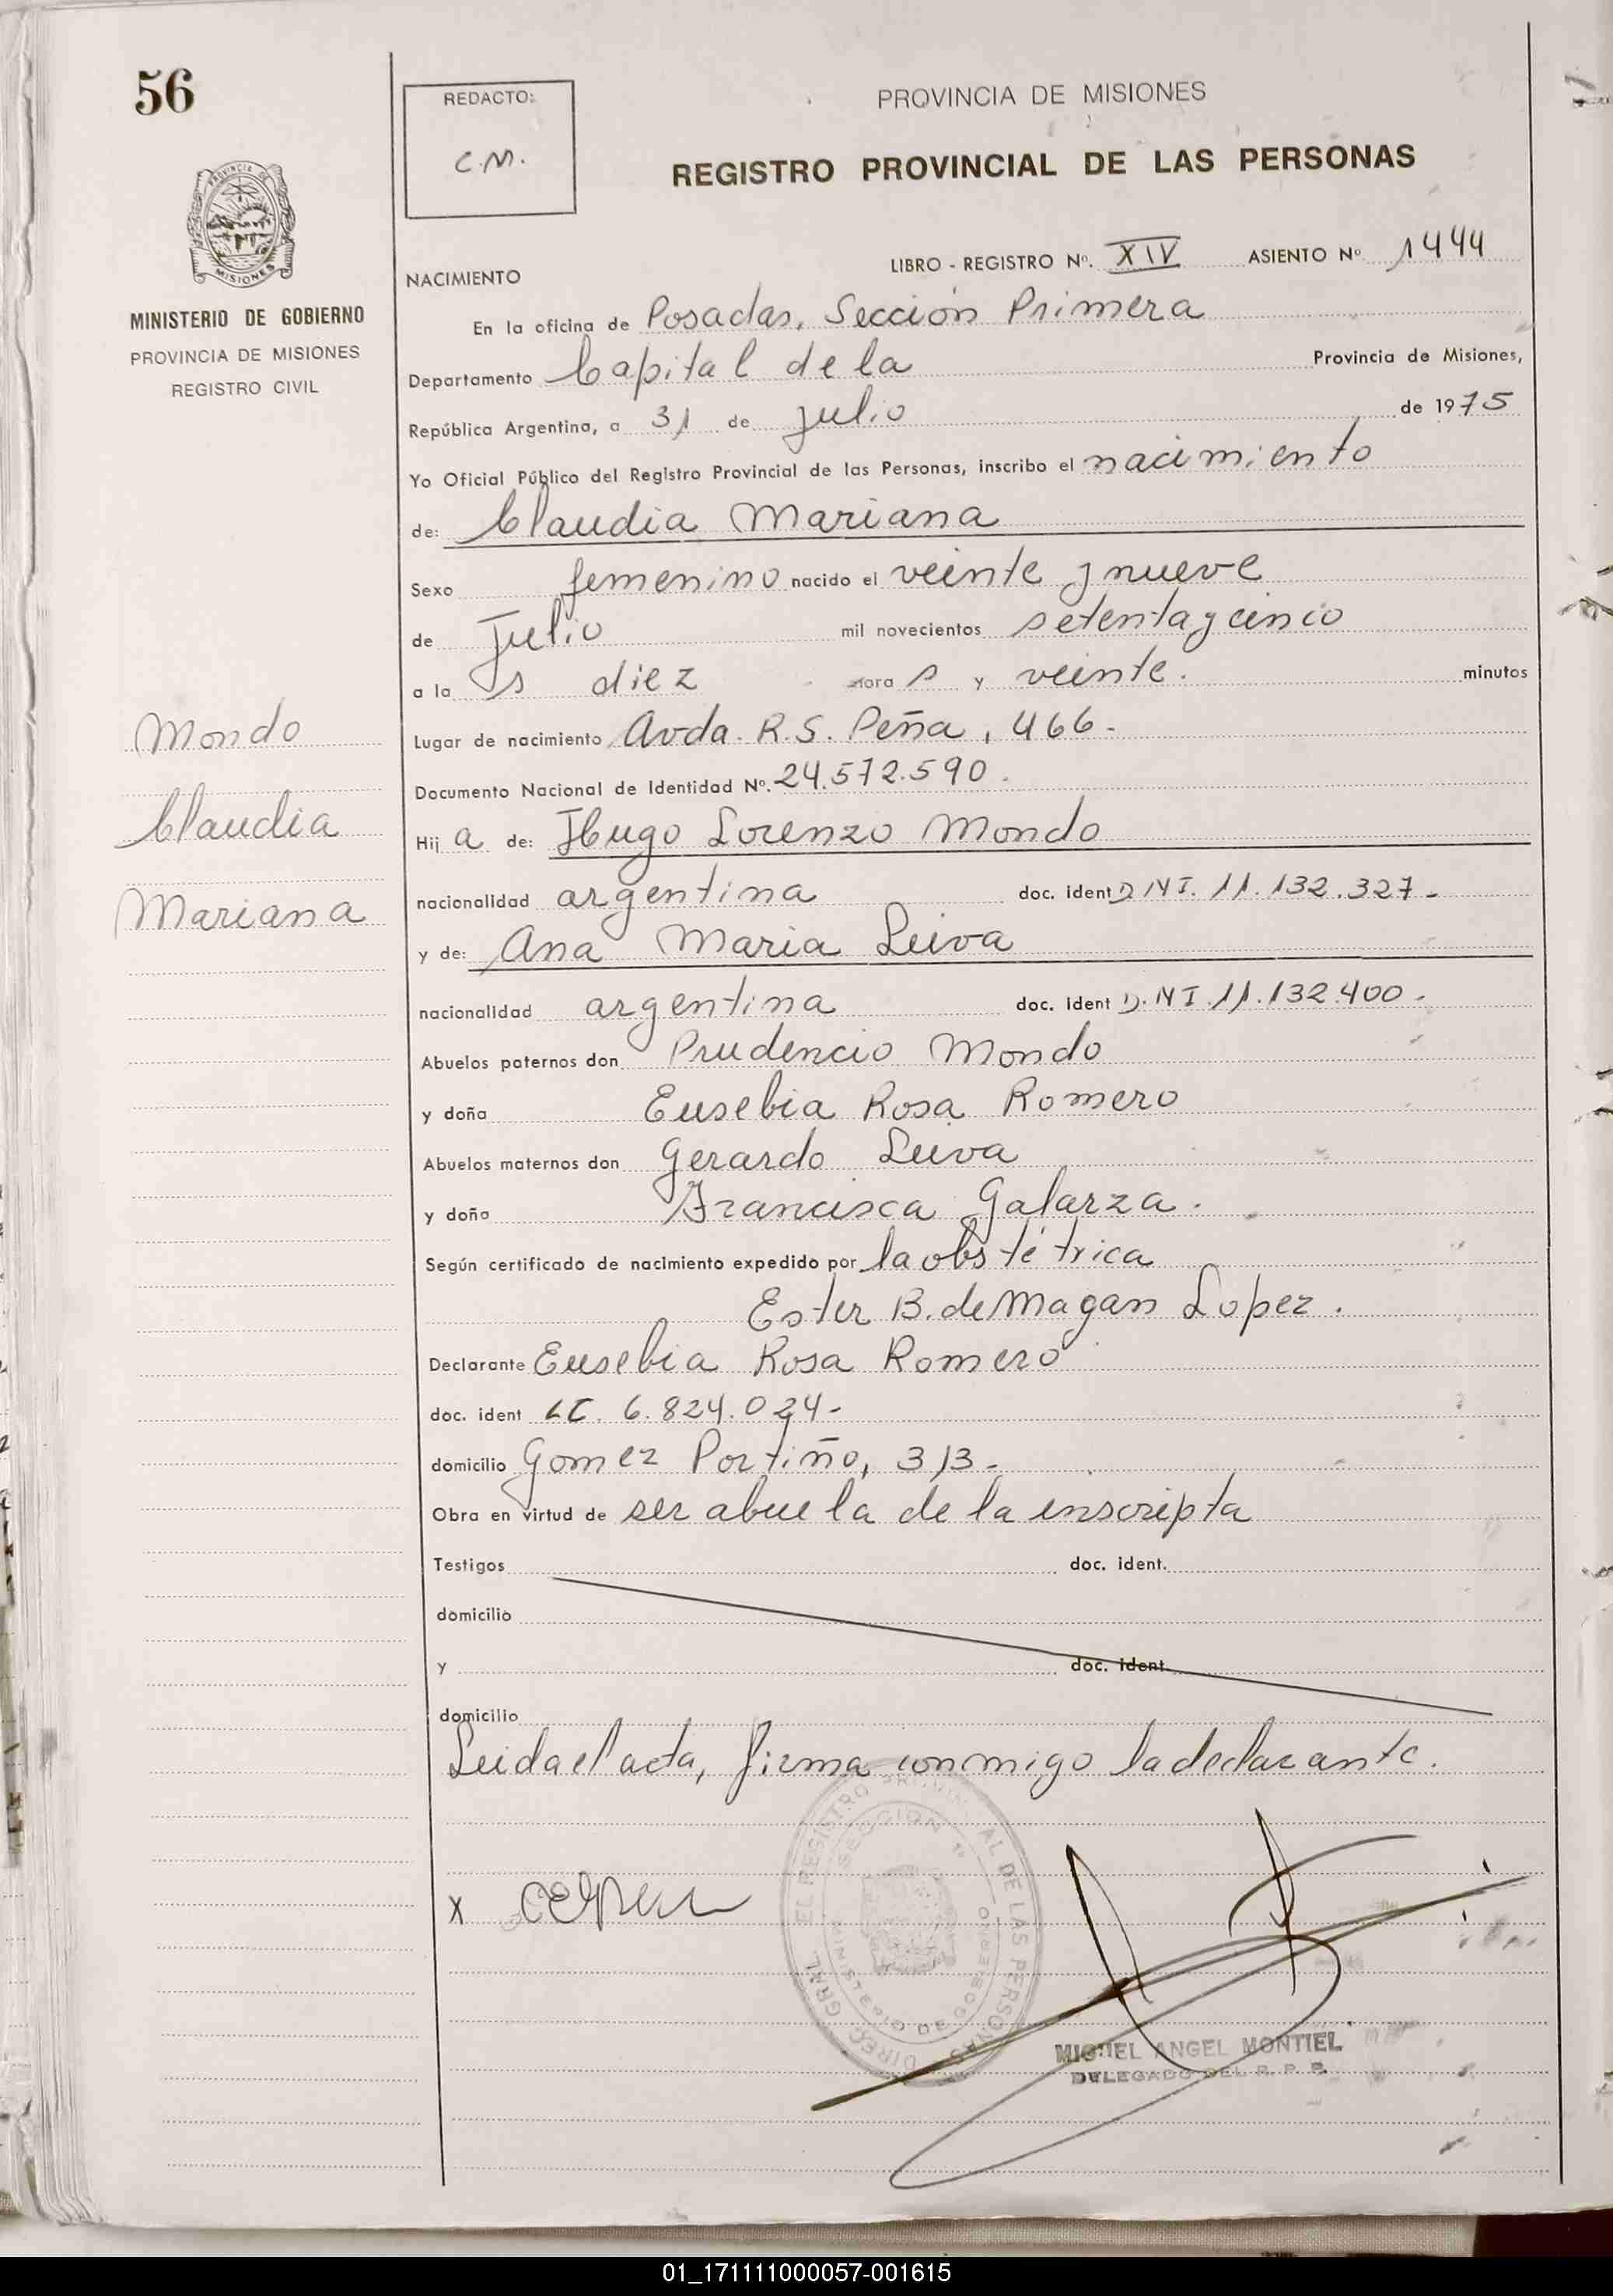 56
REDACTO:
C.M.
PROVINCIA DE MISIONES
REGISTRO PROVINCIAL DE LAS PERSONAS
MISIONES
MINISTERIO DE GOBIERNO
PROVINCIA DE MISIONES
REGISTRO CIVIL
LIBRO - REGISTRO Nº. XIV ASIENTO Nº 1444
NACIMIENTO
En la oficina de Posadas, Sección Primera
Departamento Capital de la Provincia de Misiones,
República Argentina, a 31 de julio de 1975
Yo Oficial Público del Registro Provincial de las Personas, inscribo el nacimiento
de: Claudia Mariana
Sexo femenino nacido el veinte y nueve
de Julio mil novecientos setenta y cinco
a la s diez hora s y veinte. minutos
Mondo
Claudia
Mariana
Lugar de nacimiento Avda. R.S. Peña, 466.-
Documento Nacional de Identidad Nº. 24.572.590.
Hij a de: Hugo Lorenzo Mondo
nacionalidad argentina doc. ident D.N.I. 11.132.327.-
y de: Ana Maria Leiva
nacionalidad argentina doc. ident D.N.I. 11.132.400.-
Abuelos paternos don Prudencio Mondo
y doña Eusebia Rosa Romero
Abuelos maternos don Gerardo Leiva
y doña Francisca Galarza.
Según certificado de nacimiento expedido por la obstétrica
Ester B. de Magan Lopez.
Declarante Eusebia Rosa Romero
doc. ident LC. 6.824.024-
domicilio Gomez Portiño, 313.-
Obra en virtud de ser abuela de la inscripta
Testigos doc. ident.
domicilio
y doc. ident.
domicilio
Leida el acta, firma conmigo la declarante.
x
DIREC. GRAL. DEL REGISTRO PROVINCIAL DE LAS PERSONAS
SECCION 1ª
MINISTERIO DE GOBIERNO
MIGUEL ANGEL MONTIEL
DELEGADO DEL R. P. P.
01_171111000057-001615